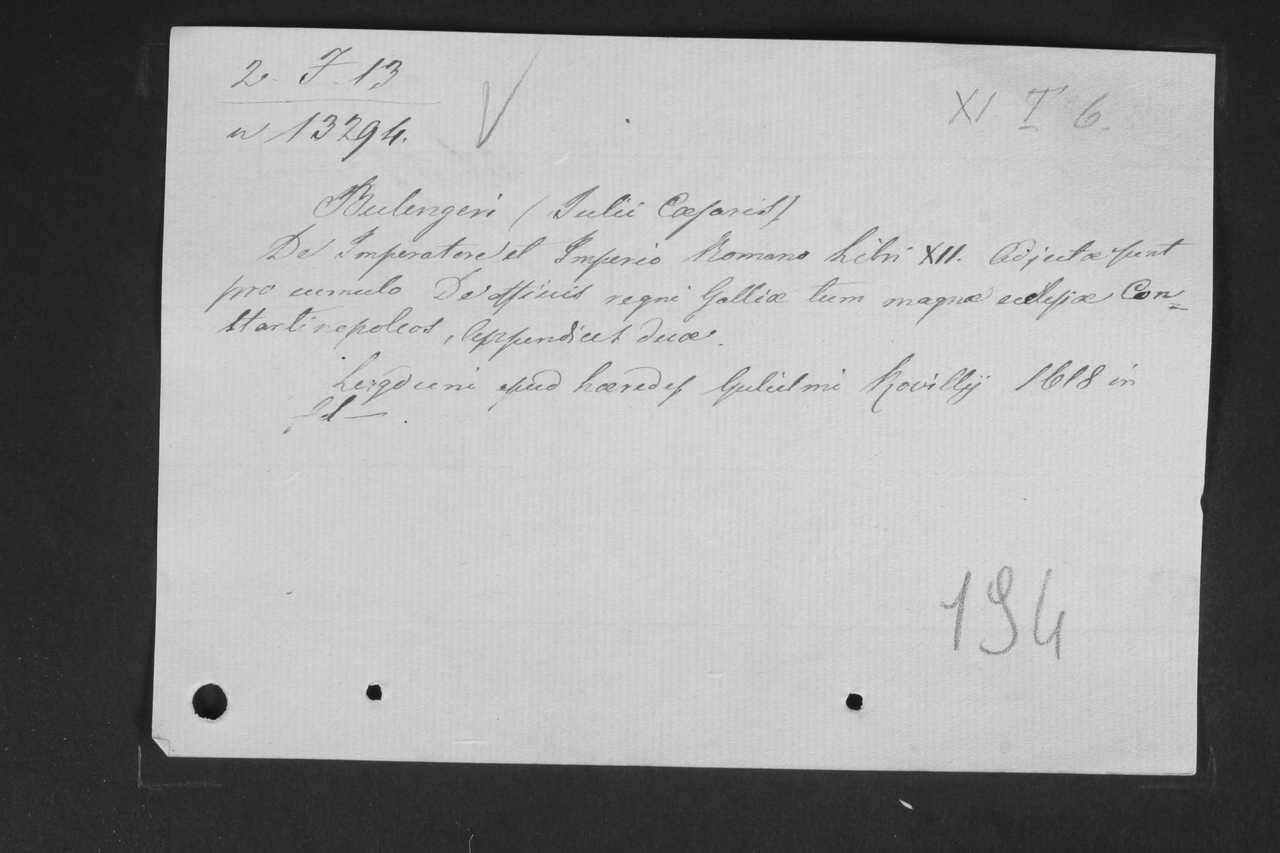 2. J. 13
n 13294.
XI. I 6.
Bulengeri (Julii Cæsaris)
De Imperatore et Imperio Romano Libri XII. Adjectæ sunt
pro cumulo De officiis regni Galliæ tum magnæ ecclesiæ Con=
stantinopoleos, Appendices duæ.
Lugduni apud hæredes Gulielmi Rovillij 1618 in
fol.
194